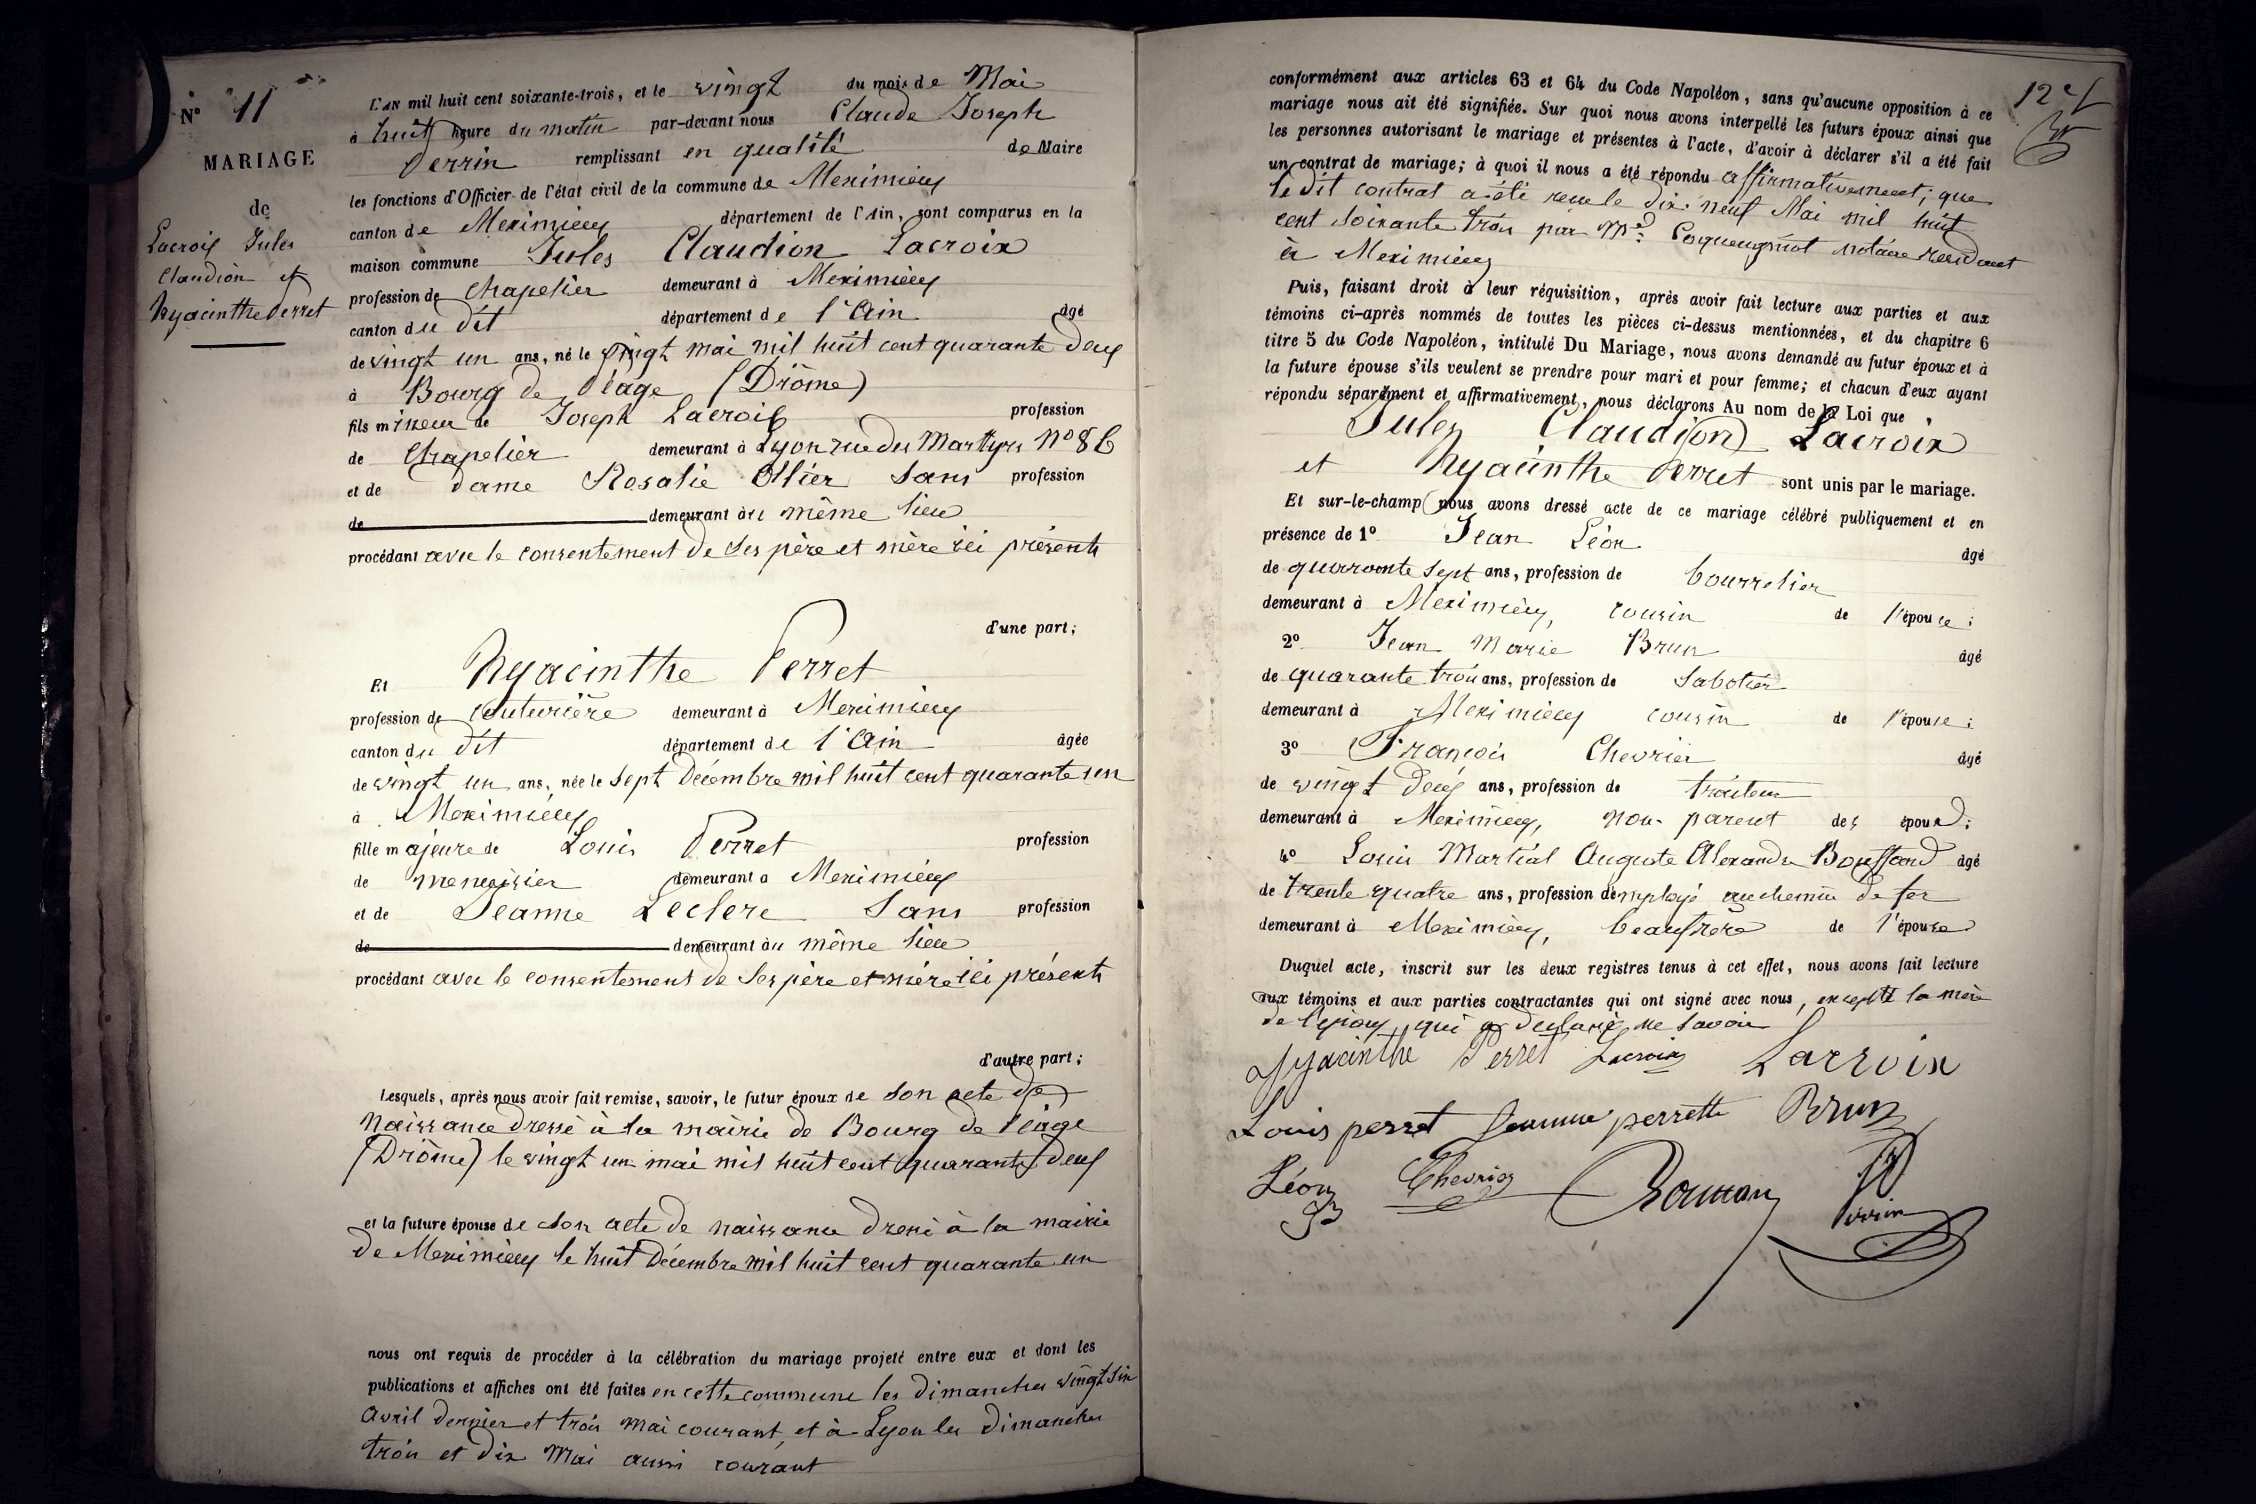 N° 11
MARIAGE
de
Lacroix Jules
Claudion et
hyacinthe Perret
L'AN mil huit cent soixante-trois, et le vingt du mois de Mai
à huit heure du matin par-devant nous Claude Joseph
Perrin remplissant en qualité de Maire
les fonctions d'Officier de l'état civil de la commune de Meximieux
canton de Meximieux département de l'Ain, sont comparus en la
maison commune Jules Claudion Lacroix
profession de Chapelier demeurant à Meximieux
canton du dit département de l'Ain âgé
de vingt un ans, né le vingt mai mil huit cent quarante deux
à Bourg de Péage (Drôme)
fils mineur de Joseph Lacroix profession
de Chapelier demeurant à Lyon rue des Martyrs N° 86
et de dame Rosalie Ollier sans profession
de demeurant au même lieu
procédant avec le consentement de ses père et mère ici présents
d'une part;
Et hyacinthe Perret
profession de Couturière demeurant à Meximieux
canton du dit département de l'Ain âgée
de vingt un ans, née le sept Décembre mil huit cent quarante un
à Meximieux
fille majeure de Louis Perret profession
de menuisier demeurant à Meximieux
et de Jeanne Leclere Sans profession
de demeurant au même lieu
procédant avec le consentement de ses père et mère ici présents
d'autre part;
Lesquels, après nous avoir fait remise, savoir, le futur époux de son acte de
naissance dressé à la mairie de Bourg de Péage
(Drôme) le vingt un mai mil huit cent quarante deux
et la future épouse de son acte de naissance dressé à la mairie
de Meximieux le huit Décembre mil huit cent quarante un
nous ont requis de procéder à la célébration du mariage projeté entre eux et dont les
publications et affiches ont été faites en cette commune les dimanches vingt six
avril dernier et trois mai courant, et à Lyon les dimanches
trois et dix Mai aussi courant
conformément aux articles 63 et 64 du Code Napoléon, sans qu'aucune opposition à ce
mariage nous ait été signifiée. Sur quoi nous avons interpellé les futurs époux ainsi que
les personnes autorisant le mariage et présentes à l'acte, d'avoir à déclarer s'il a été fait
un contrat de mariage; à quoi il nous a été répondu affirmativement; que
le dit contrat a été reçu le dix-neuf Mai mil huit
cent soixante trois par Me Coqueugniot notaire résidant
à Meximieux
Puis, faisant droit à leur réquisition, après avoir fait lecture aux parties et aux
témoins ci-après nommés de toutes les pièces ci-dessus mentionnées, et du chapitre 6
titre 5 du Code Napoléon, intitulé Du Mariage, nous avons demandé au futur époux et à
la future épouse s'ils veulent se prendre pour mari et pour femme; et chacun d'eux ayant
répondu séparément et affirmativement, nous déclarons Au nom de la Loi que
Jules Claudion Lacroix
et hyacinthe Perret sont unis par le mariage.
Et sur-le-champ nous avons dressé acte de ce mariage célébré publiquement et en
présence de 1° Jean Léon âgé
de quarante sept ans, profession de bourrelier
demeurant à Meximieux, cousin de l'épouse;
2° Jean Marie Brun âgé
de quarante trois ans, profession de Sabotier
demeurant à Meximieux cousin de l'épouse;
3° François Chevrier âgé
de vingt deux ans, profession de traiteur
demeurant à Meximieux, non parent des époux;
4° Louis Martial Auguste Alexandre âgé
de trente quatre ans, profession d'employé au chemin de fer
demeurant à Meximieux, beaufrère de l'épouse
Duquel acte, inscrit sur les deux registres tenus à cet effet, nous avons fait lecture
aux témoins et aux parties contractantes qui ont signé avec nous, excepté la mère
de l'époux qui a declaré ne savoir
hyacinthe Perret Lacroix Lacroix
Louis perret Jeanne perrette Brun
Léon Chevrier
Perrin